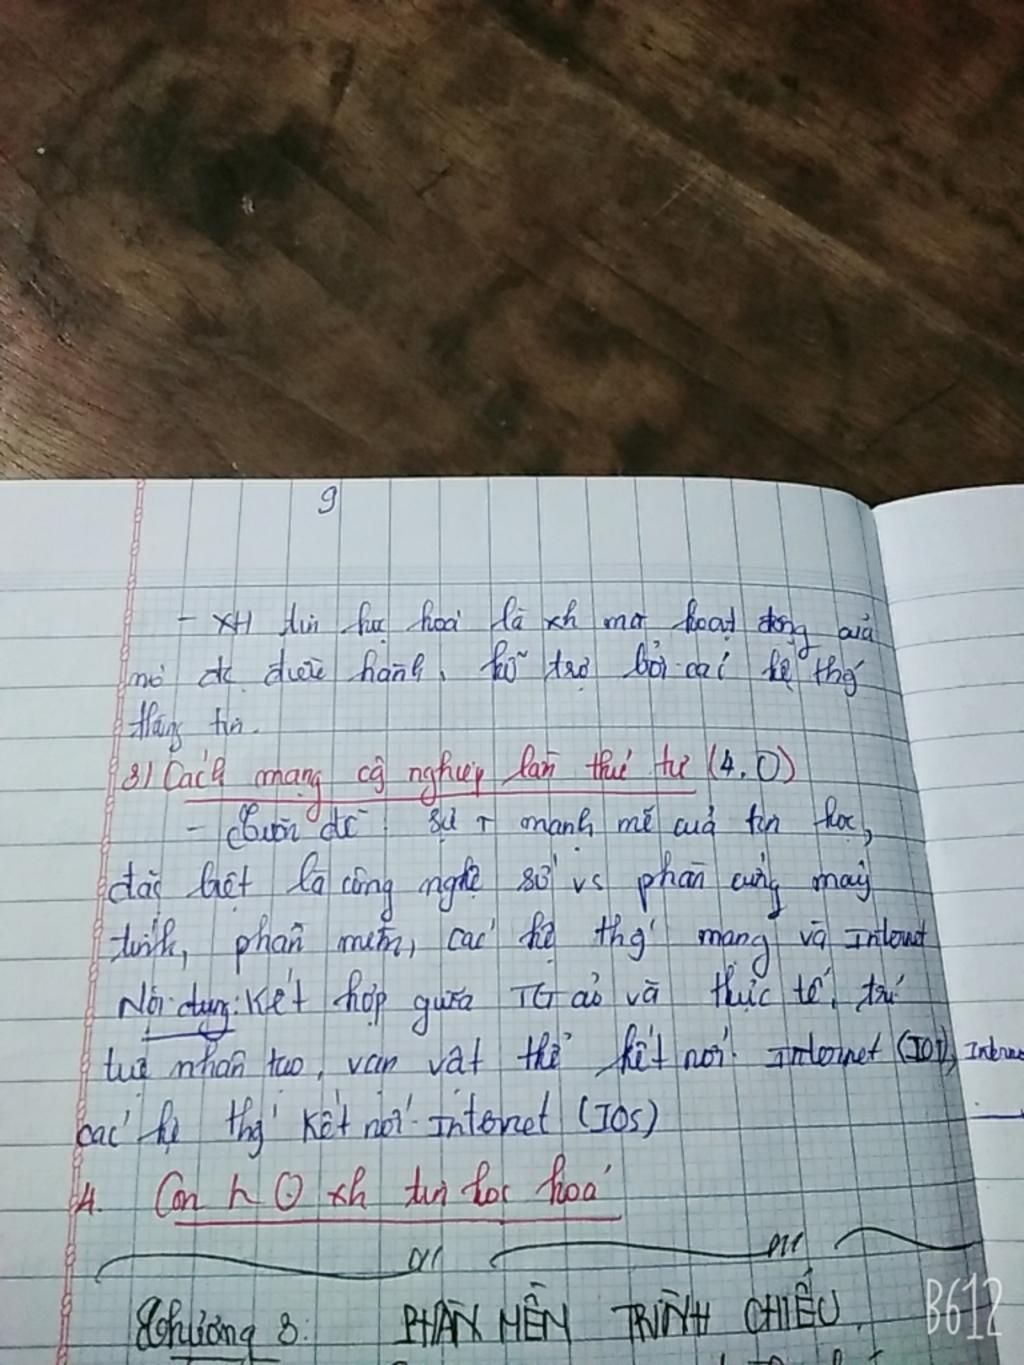 9
- XH tin học hoá là xh mà hoạt động của
nó đc điều hành, hỗ trợ bởi các hệ thg
thông tin.
3) Cách mạng cg nghiệp lần thứ tư (4.0)
- : sự ↑ mạnh mẽ của tin học,
đặc biệt là công nghệ số vs phần cứng máy
tính, phần mềm, các hệ thg mạng và Internet
Nội dung: Kết hợp giữa TG ảo và thực tế, trí
tuệ nhân tạo, vạn vật thể kết nối Internet (IOT), Interne
các hệ thg kết nối Internet (IOs)
4. Con xh tin học hoá
Chương 3: PHẦN MỀN TRÌNH CHIẾU.
B612